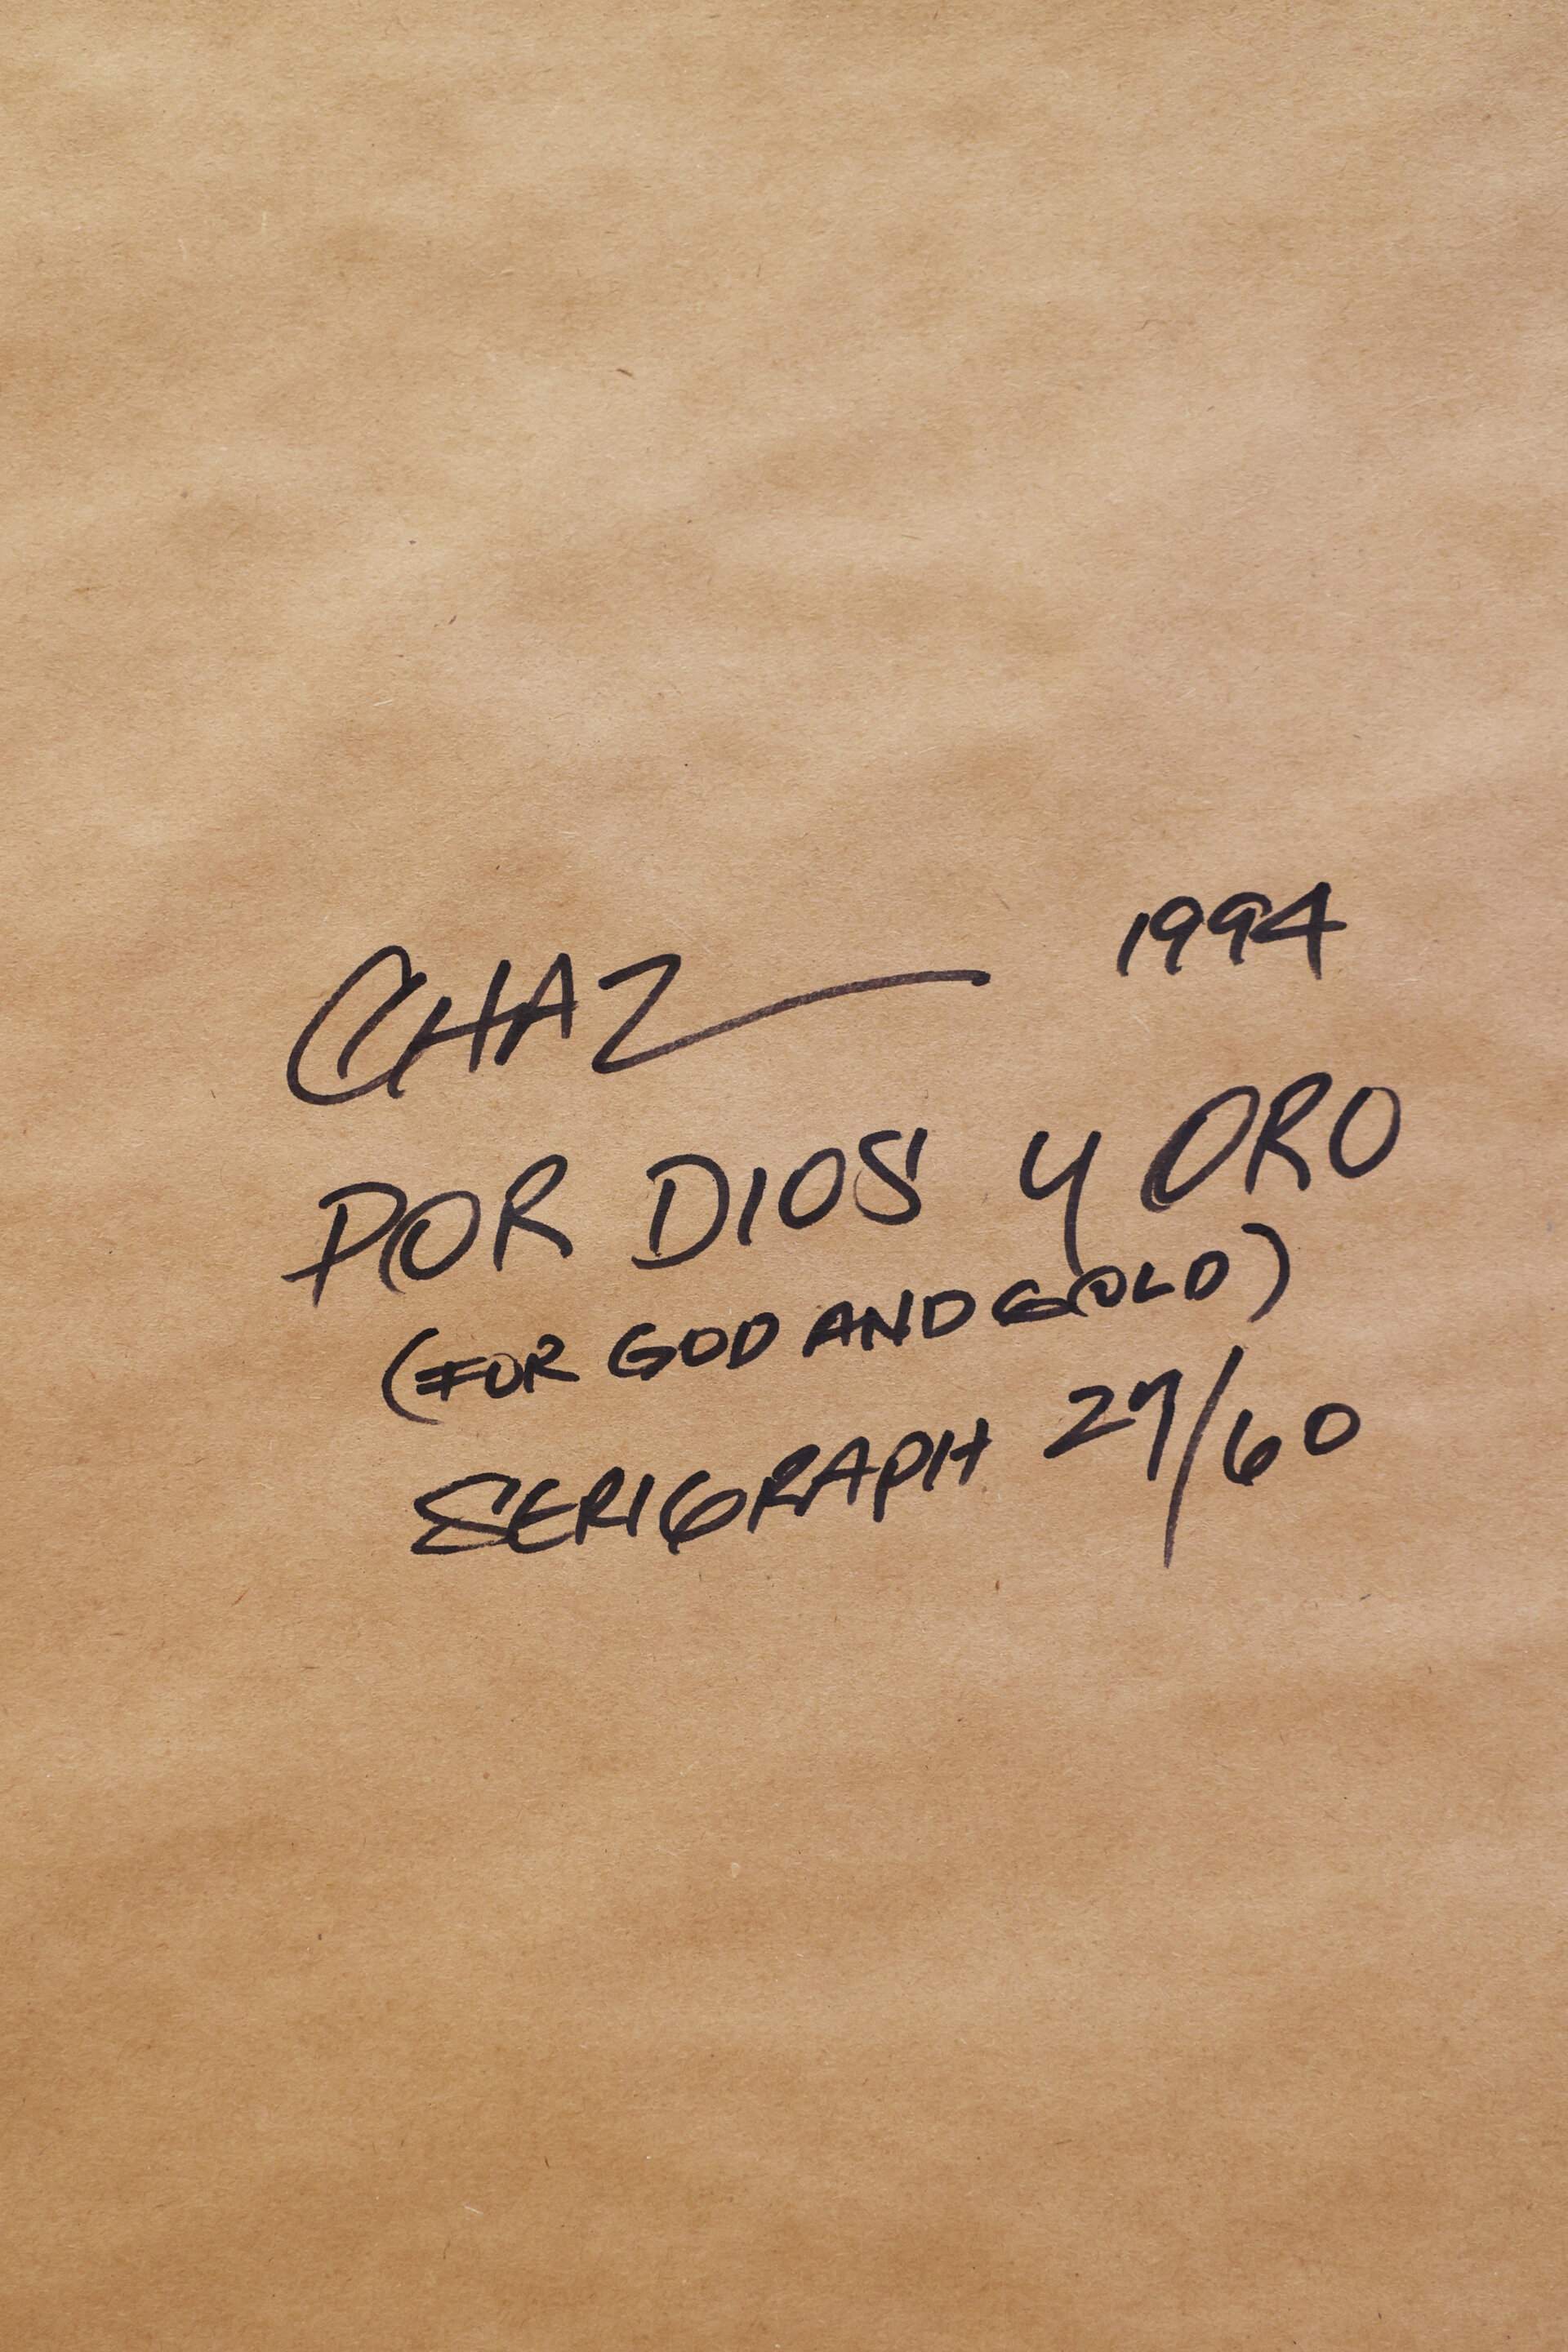 CHAZ 1994
POR DIOS Y ORO
(FOR GOD AND GOLD)
SERIGRAPH 27/60